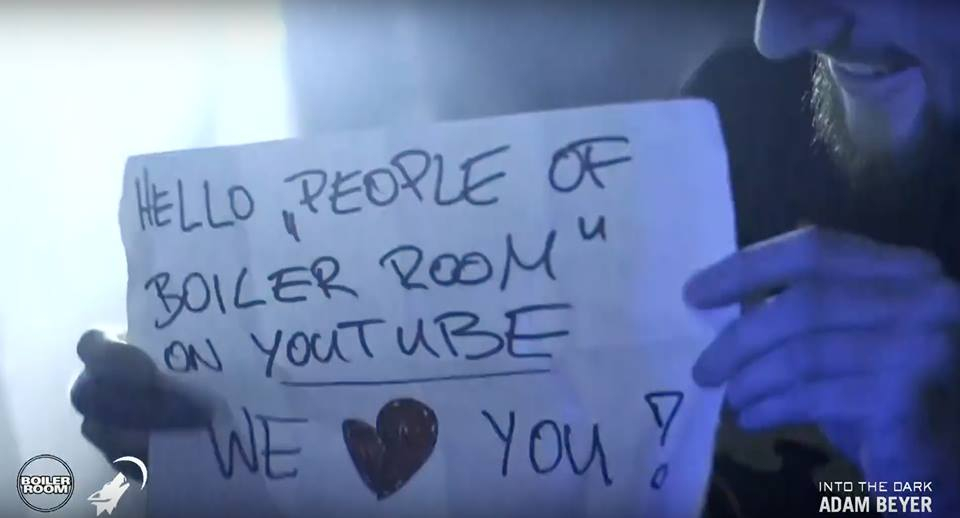 HELLO „PEOPLE OF
BOILER ROOM"
ON YOUTUBE
WE ❤ YOU!
BOILER
ROOM
INTO THE DARK
ADAM BEYER